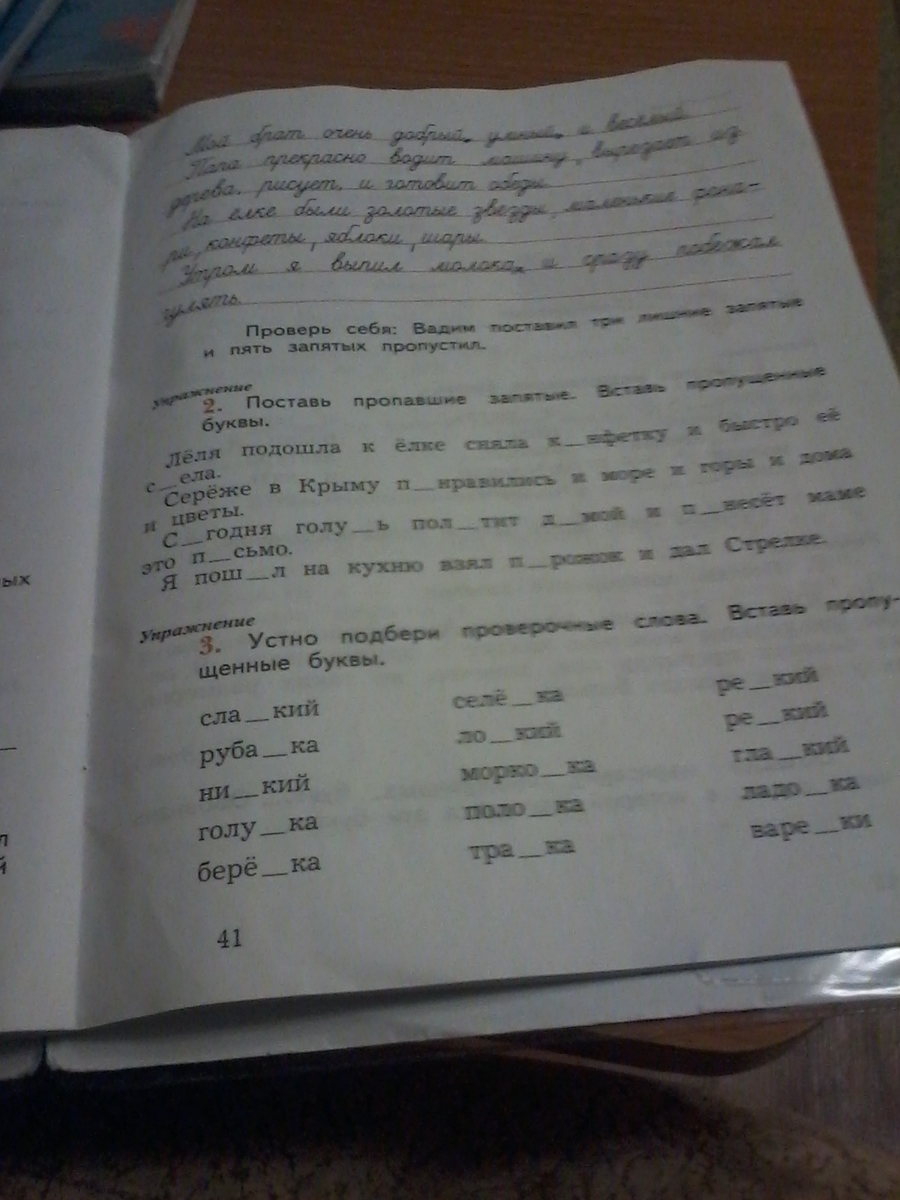 Мой брат очень добрый, умный, и весёлый
Папа прекрасно водит машину, вырезает из
дерева, рисует, и готовит обеды.
На елке были золотые звезды, маленькие фона-
ри, конфеты, яблоки, шары.
Утром я выпил молока, и сразу побежал
гулять.
Проверь себя: Вадим поставил три лишние запятые
и пять запятых пропустил.
Упражнение
2. Поставь пропавшие запятые. Вставь пропущенные
буквы.
Лёля подошла к ёлке сняла к_нфетку и быстро её
с_ела.
Серёже в Крыму п_нравились и море и горы и дома
и цветы.
С_годня голу_ь пол_тит д_мой и п_несёт маме
это п_сьмо.
Я пош_л на кухню взял п_рожок и дал Стрелке.
Упражнение
3. Устно подбери проверочные слова. Вставь пропу-
щенные буквы.
сла_кий селё_ка ре_кий
руба_ка ло_кий ре_кий
ни_кий морко_ка гла_кий
голу_ка поло_ка ладо_ка
берё_ка тра_ка варе_ки
41
ых
л
й